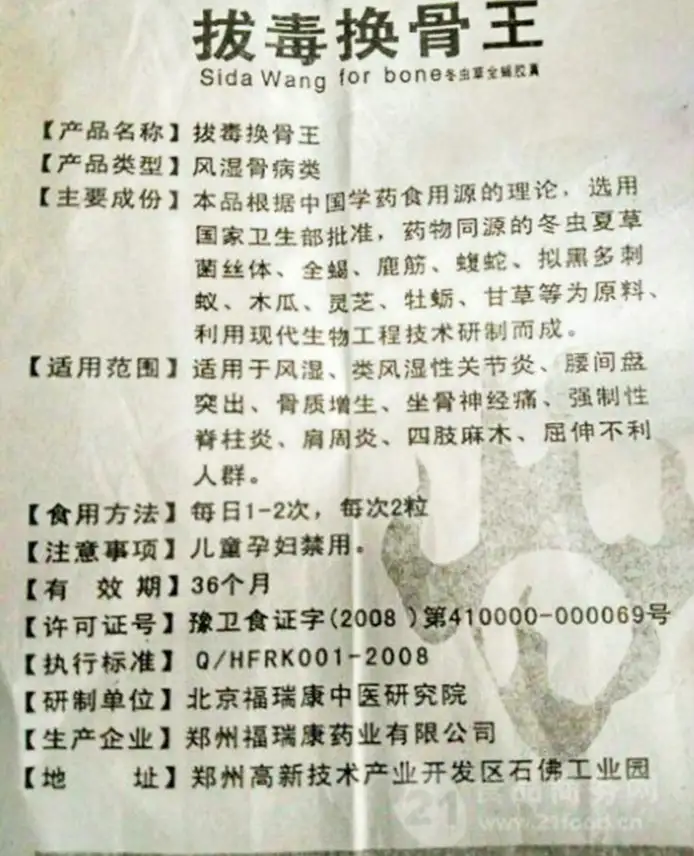 拔毒换骨王
Sida Wang for bone冬虫草全蝎胶囊
【产品名称】拔毒换骨王
【产品类型】风湿骨病类
【主要成份】本品根据中国学药食用源的理论，选用
国家卫生部批准，药物同源的冬虫夏草
菌丝体、全蝎、鹿筋、蝮蛇、拟黑多刺
蚁、木瓜、灵芝、牡蛎、甘草等为原料、
利用现代生物工程技术研制而成。
【适用范围】适用于风湿、类风湿性关节炎、腰间盘
突出、骨质增生、坐骨神经痛、强制性
脊柱炎、肩周炎、四肢麻木、屈伸不利
人群。
【食用方法】每日1-2次，每次2粒
【注意事项】儿童孕妇禁用。
【有 效 期】36个月
【许可证号】豫卫食证字(2008 )第410000-000069号
【执行标准】Q/HFRK001-2008
【研制单位】北京福瑞康中医研究院
【生产企业】郑州福瑞康药业有限公司
【地 址】郑州高新技术产业开发区石佛工业园
21食品商务网
www.21food.cn